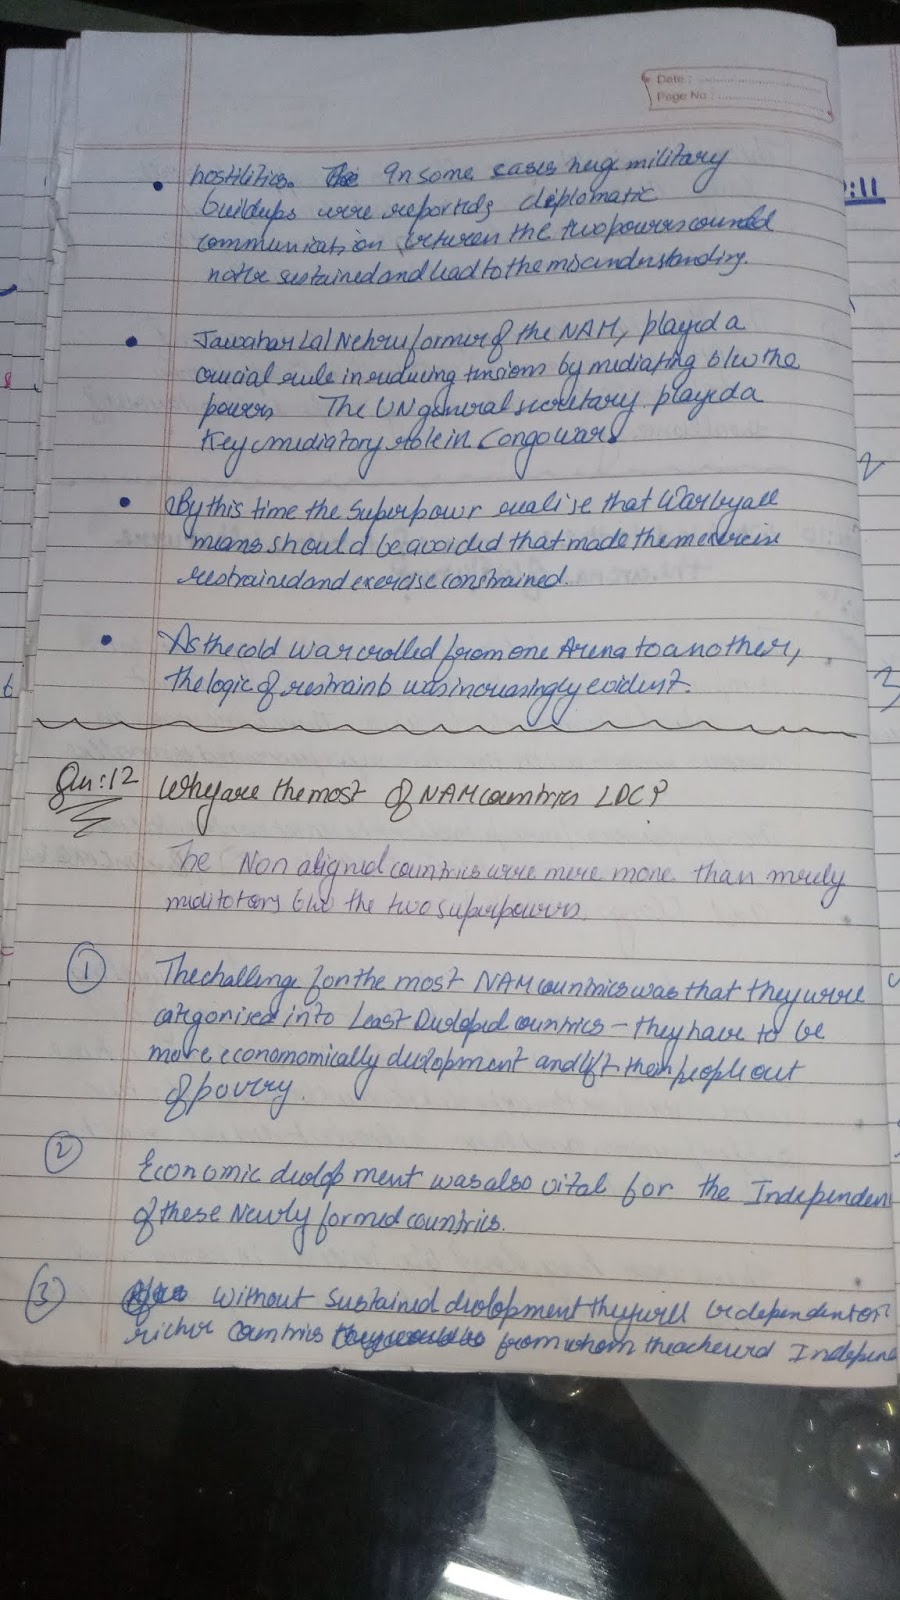 Date :
Page No :
:11
hostilities. The In some cases huge military
buildups were reported, diplomatic
communication between the two powers could
not be sustained and lead to the misunderstanding.
Jawahar Lal Nehru former of the NAM, played a
crucial rule in reducing tensions by mediating b/w the
powers The UN general secretary played a
Key mediatory role in Congo wars
By this time the Superpowr realise that War by all
means should be avoided that made them exercise
restrained and exercise constrained.
As the cold war rolled from one Arena to another,
the logic of restraint was increasingly evident.
Qu:12 Why are the most of NAM countries LDC?
The Non aligned countries were mere more than merely
b/w the two superpowers.
① The challenge for the most NAM countries was that they were
categorised into Least Developed countries - they have to be
more economomically development and lift their people out
of povrry.
② Economic development was also vital for the Independen
of these Newly formed countries.
③ Without Sustained development they will be dependent on
richer countries from whom the Indepen